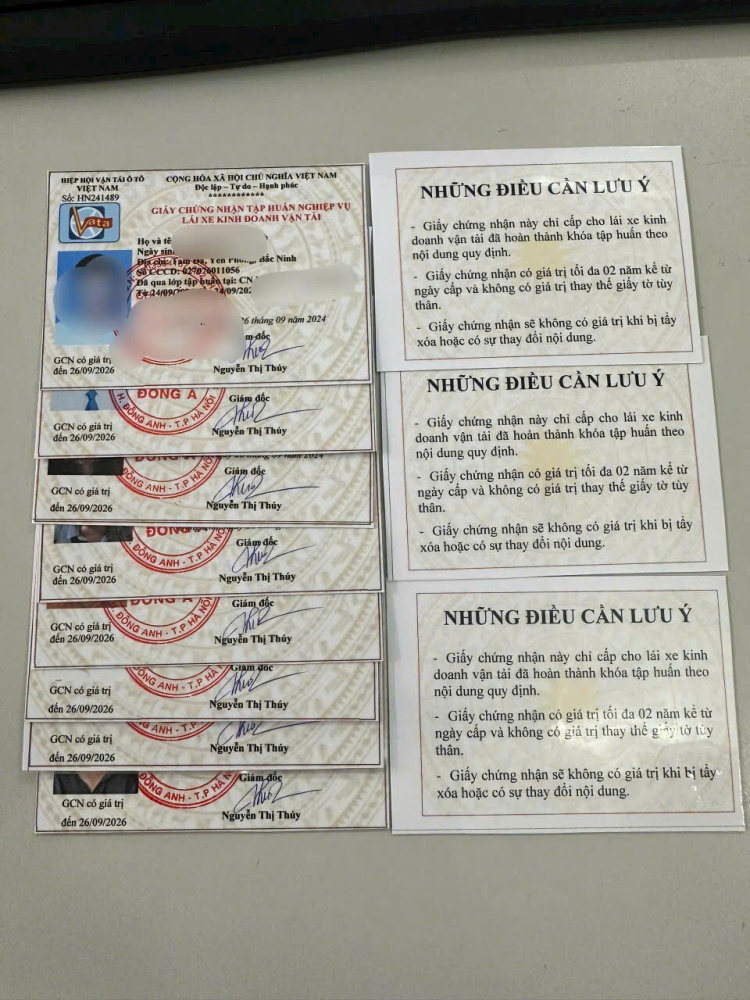 HIỆP HỘI VẬN TẢI Ô TÔ
VIỆT NAM
Số: HN241489
Vata
CỘNG HÒA XÃ HỘI CHỦ NGHĨA VIỆT NAM
Độc lập – Tự do – Hạnh phúc
************
GIẤY CHỨNG NHẬN TẬP HUẤN NGHIỆP VỤ
LÁI XE KINH DOANH VẬN TẢI
Họ và tê
Ngày sin
Địa chỉ: Tam Đa, Yên Phong, Bắc Ninh
Số CCCD: 027076011056
Đã qua lớp tập huấn tại: CN
Từ 24/09/ 24/09/202
26 tháng 09 năm 2024
m đốc
GCN có giá trị
đến 26/09/2026
Nguyễn Thị Thúy
ĐÔNG A
H. ĐÔNG ANH - T.P HÀ NỘI
Giám đốc
GCN có giá trị
đến 26/09/2026
Nguyễn Thị Thúy
09 năm 2024
ĐÔNG ANH - T.P HÀ NỘI
Giám đốc
GCN có giá trị
đến 26/09/2026
Nguyễn Thị Thúy
ĐÔNG
ĐÔNG ANH - T.P HÀ NỘI
Giám đốc
GCN có giá trị
đến 26/09/2026
Nguyễn Thị Thúy
ĐÔNG A
ĐÔNG ANH - T.P HÀ NỘI
Giám đốc
GCN có giá trị
đến 26/09/2026
Nguyễn Thị Thúy
ANH - T.P HÀ
Giám đốc
GCN có giá trị
đến 26/09/2026
Nguyễn Thị Thúy
ANH - T.P
GCN có giá trị
đến 26/09/2026
Nguyễn Thị Thúy
ĐÔNG ANH - T.P HÀ
Giám đốc
GCN có giá trị
đến 26/09/2026
Nguyễn Thị Thúy
NHỮNG ĐIỀU CẦN LƯU Ý
- Giấy chứng nhận này chỉ cấp cho lái xe kinh
doanh vận tải đã hoàn thành khóa tập huấn theo
nội dung quy định.
- Giấy chứng nhận có giá trị tối đa 02 năm kể từ
ngày cấp và không có giá trị thay thế giấy tờ tùy
thân.
- Giấy chứng nhận sẽ không có giá trị khi bị tẩy
xóa hoặc có sự thay đổi nội dung.
NHỮNG ĐIỀU CẦN LƯU Ý
- Giấy chứng nhận này chỉ cấp cho lái xe kinh
doanh vận tải đã hoàn thành khóa tập huấn theo
nội dung quy định.
- Giấy chứng nhận có giá trị tối đa 02 năm kể từ
ngày cấp và không có giá trị thay thế giấy tờ tùy
thân.
- Giấy chứng nhận sẽ không có giá trị khi bị tẩy
xóa hoặc có sự thay đổi nội dung.
NHỮNG ĐIỀU CẦN LƯU Ý
- Giấy chứng nhận này chỉ cấp cho lái xe kinh
doanh vận tải đã hoàn thành khóa tập huấn theo
nội dung quy định.
- Giấy chứng nhận có giá trị tối đa 02 năm kể từ
ngày cấp và không có giá trị thay thế giấy tờ tùy
thân.
- Giấy chứng nhận sẽ không có giá trị khi bị tẩy
xóa hoặc có sự thay đổi nội dung.